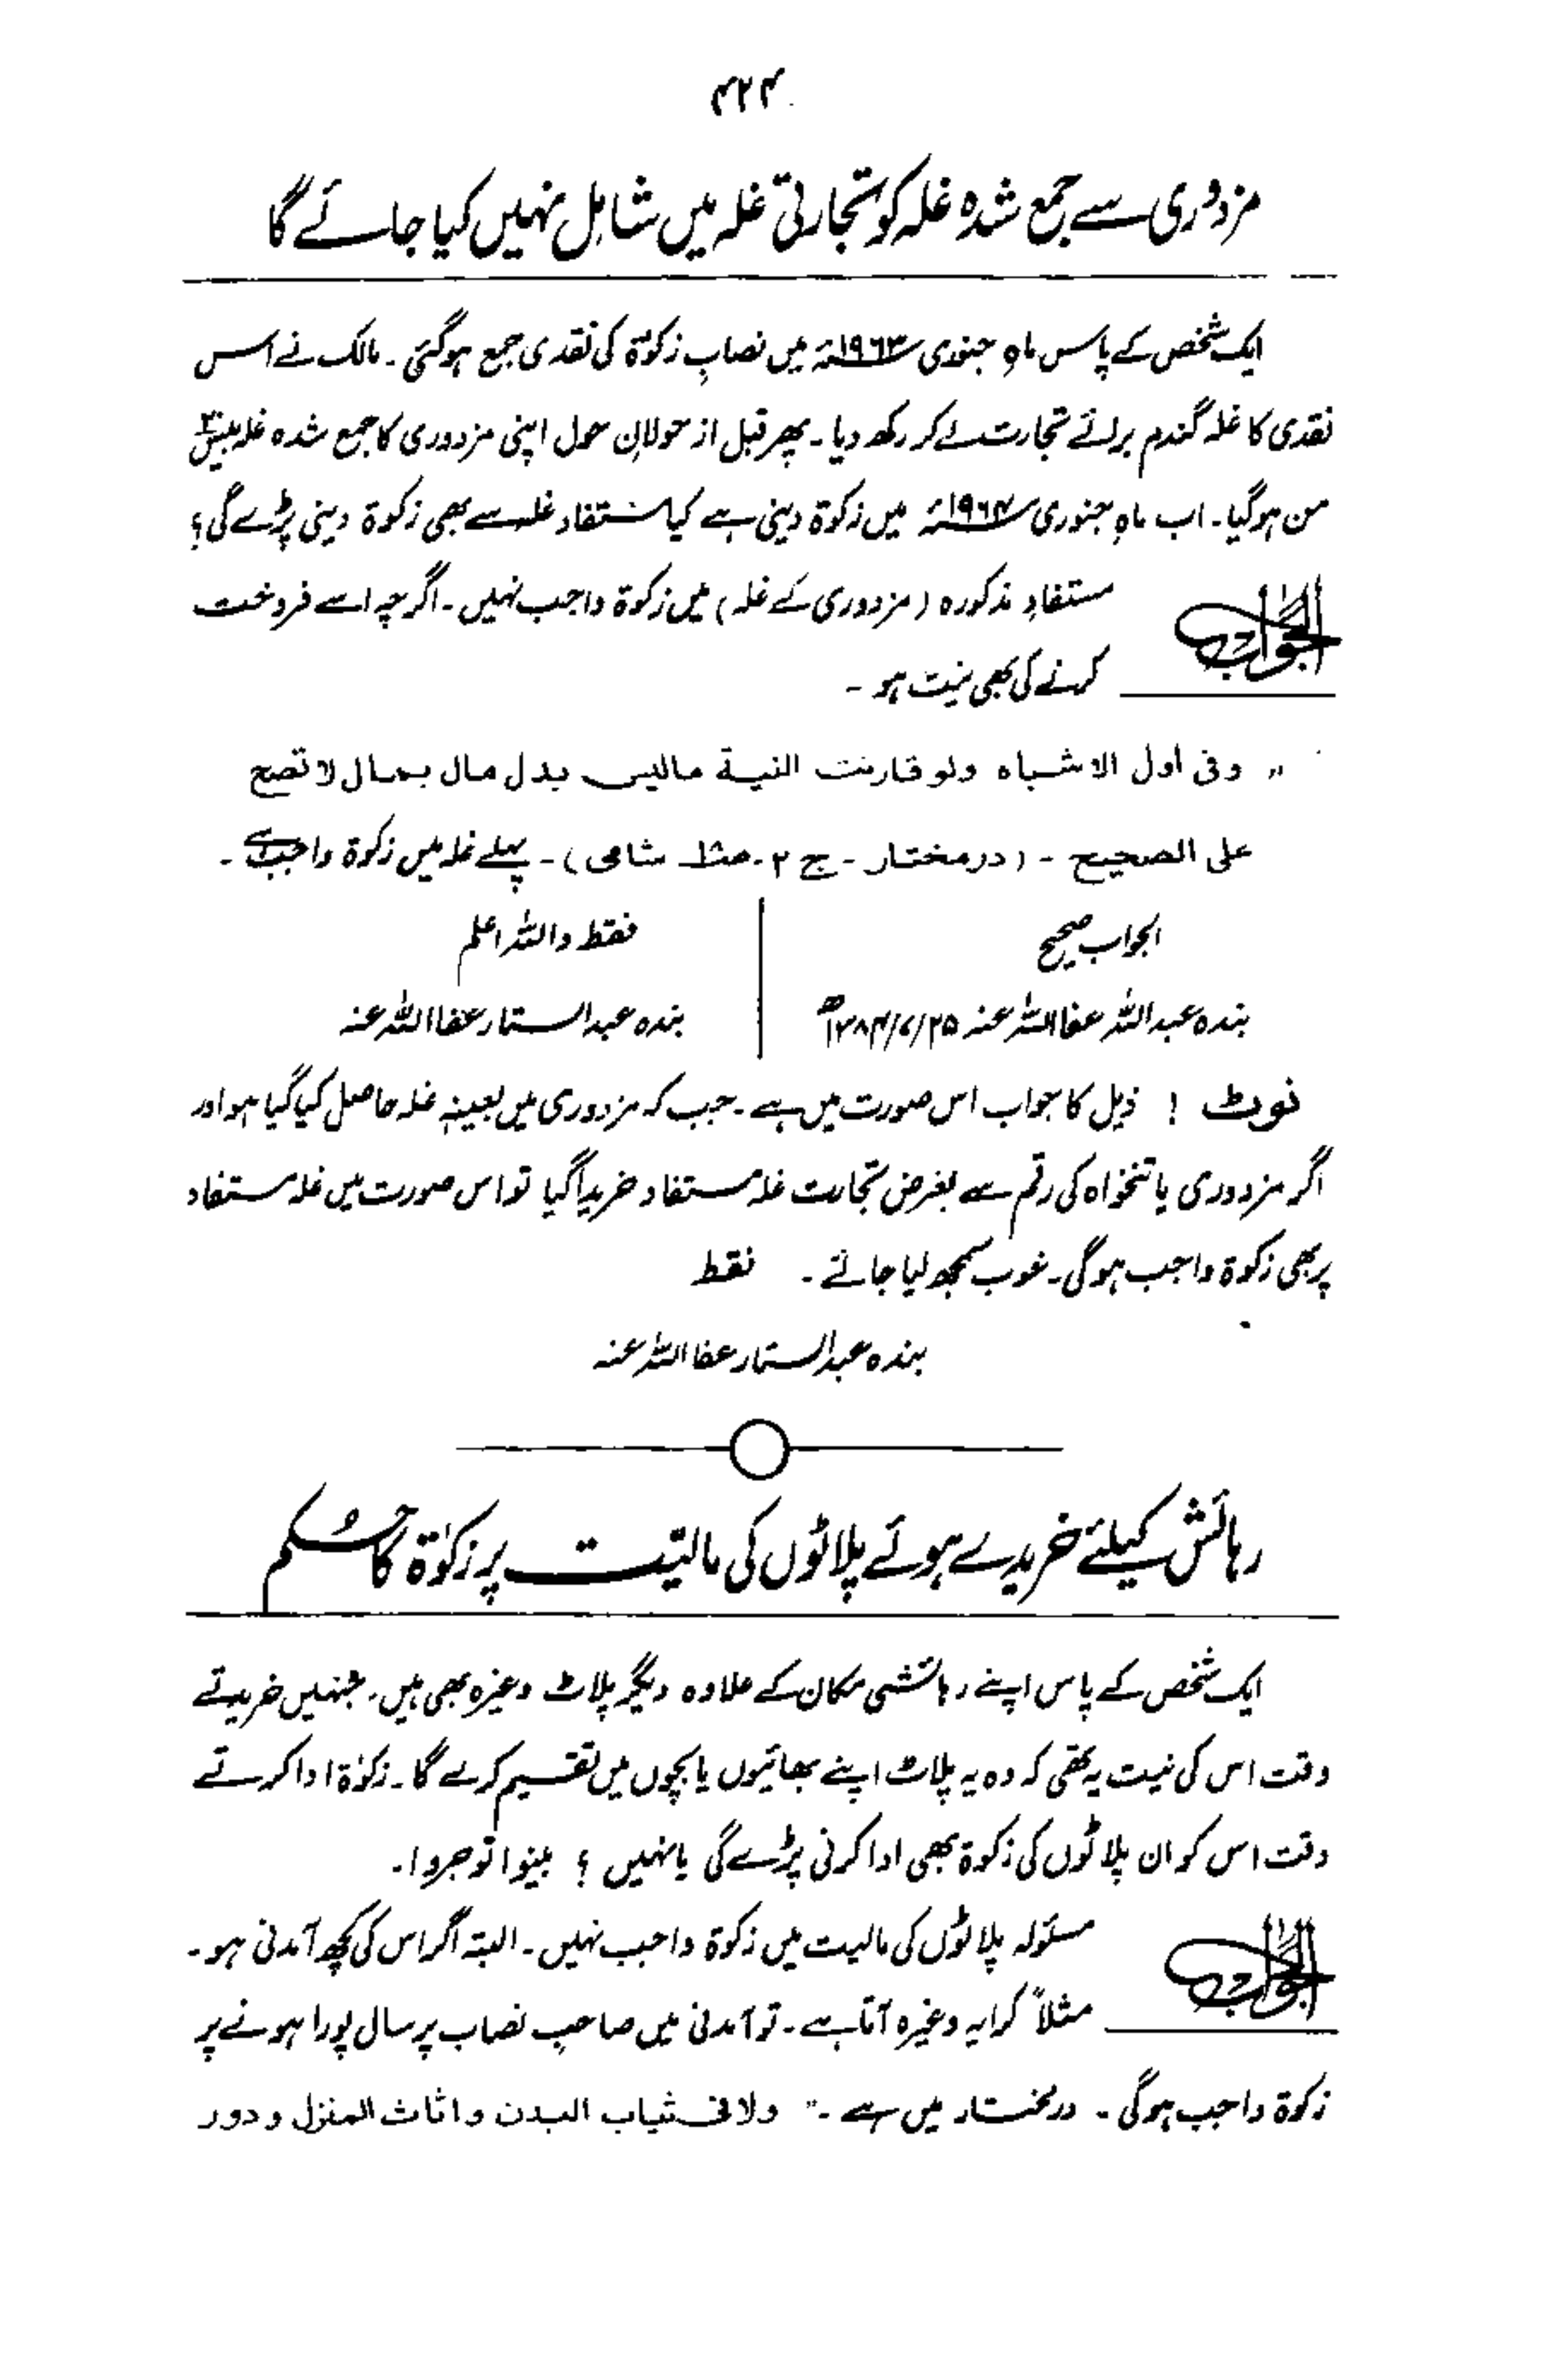 ۴۲۴
مزدوری سے جمع شدہ غلہ کو تجارتی غلہ میں شامل نہیں کیا جائے گا
ایک شخص کے پاس ماہِ جنوری ۱۹۶۳ء میں نصابِ زکوٰۃ کی نقدی جمع ہوگئی۔ مالک نے اس
نقدی کا غلہ گندم برائے تجارت لے کر رکھ دیا۔ پھر قبل از حولانِ حول اپنی مزدوری کا جمع شدہ غلہ
من ہوگیا۔ اب ماہِ جنوری ۱۹۶۴ء میں زکوٰۃ دینی ہے کیا مستفاد غلہ سے بھی زکوٰۃ دینی پڑے گی؟
الجواب
مستفادِ مذکورہ (مزدوری کے غلہ) میں زکوٰۃ واجب نہیں۔ اگرچہ اسے فروخت
کرنے کی بھی نیت ہو۔
"وفی اول الاشباہ ولو قارنت النیۃ مالیس بدل مال بمال لا تصح
علی الصحیح۔ (درمختار۔ ج ۲۔ شامی)۔ پہلے غلہ میں زکوٰۃ واجب ہے۔
الجواب صحیح
بندہ عبداللہ عفا اللہ عنہ ۲۵/۷/۱۳۸۴ھ
فقط واللہ اعلم
بندہ عبدالستار عفا اللہ عنہ
نوٹ ! ذیل کا جواب اس صورت میں ہے۔ جب کہ مزدوری میں بعینہٖ غلہ حاصل کیا گیا ہو اور
اگر مزدوری یا تنخواہ کی رقم سے بغرض تجارت غلہ مستفاد خریدا گیا تو اس صورت میں غلہ مستفاد
پر بھی زکوٰۃ واجب ہوگی۔ خوب سمجھ لیا جائے۔ فقط
بندہ عبدالستار عفا اللہ عنہ
رہائش کیلئے خریدے ہوئے پلاٹوں کی مالیّت پر زکوٰۃ کا حُکم
ایک شخص کے پاس اپنے رہائشی مکان کے علاوہ دیگر پلاٹ وغیرہ بھی ہیں۔ جنہیں خریدتے
وقت اس کی نیت یہ تھی کہ وہ یہ پلاٹ اپنے بھائیوں یا بچوں میں تقسیم کرے گا۔ زکوٰۃ ادا کرتے
وقت اس کو ان پلاٹوں کی زکوٰۃ بھی ادا کرنی پڑے گی یا نہیں ؟ بینوا توجروا۔
الجواب
مسئولہ پلاٹوں کی مالیت میں زکوٰۃ واجب نہیں۔ البتہ اگر اس کی کچھ آمدنی ہو۔
مثلاً کرایہ وغیرہ آتا ہے۔ تو آمدنی میں صاحبِ نصاب پر سال پورا ہونے پر
زکوٰۃ واجب ہوگی۔ درمختار میں ہے۔" ولا فی ثیاب البدن و اثاث المنزل و دور